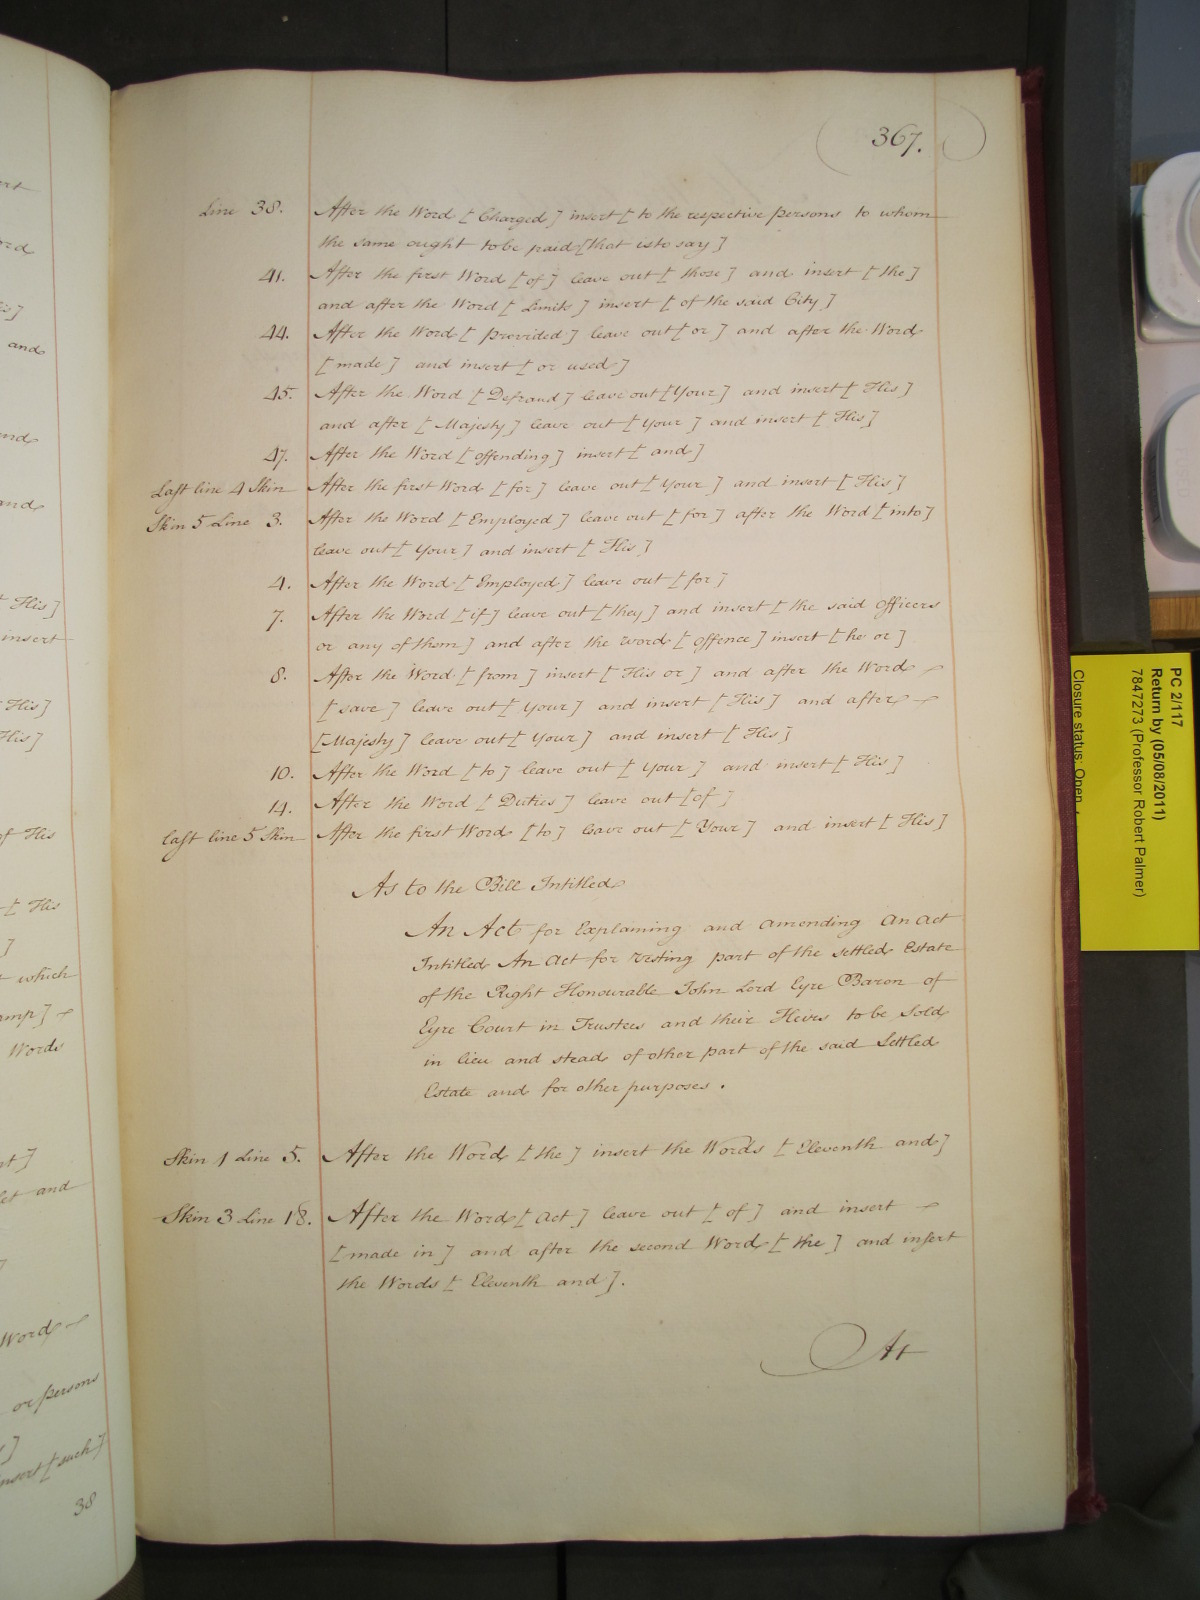 367.
Line 38. After the Word [ Charged ] insert [ to the respective persons to whom
the same ought to be paid [that is to say ]
41. After the first Word [ of ] leave out [ those ] and insert [ the ]
and after the Word [ Limits ] insert [ of the said City ]
44. After the Word [ provided ] leave out [ or ] and after the Word
[ made ] and insert [ or used ]
45. After the Word [ Defraud ] leave out [ Your ] and insert [ His ]
and after [ Majesty ] leave out [ Your ] and insert [ His ]
47. After the Word [ offending ] insert [ and ]
Last line 4 Skin After the first Word [ for ] leave out [ Your ] and insert [ His ]
Skin 5 Line 3. After the Word [ Employed ] leave out [ for ] after the Word [ into ]
leave out [ Your ] and insert [ His ]
4. After the Word [ Employed ] leave out [ for ]
7. After the Word [ if ] leave out [ they ] and insert [ the said officers
or any of them ] and after the word [ offence ] insert [ he or ]
8. After the Word [ from ] insert [ His or ] and after the Word
[ save ] leave out [ Your ] and insert [ His ] and after
[Majesty ] leave out [ Your ] and insert [ His ]
10. After the Word [ to ] leave out [ Your ] and insert [ His ]
14. After the Word [ Duties ] leave out [ of ]
last line 5 Skin After the first Word [ to ] leave out [ Your ] and insert [ His ]
As to the Bill Intitled
An Act for Explaining and amending an Act
Intitled An Act for vesting part of the settled Estate
of the Right Honourable John Lord Eyre Baron of
Eyre Court in Trustees and their Heirs to be Sold
in lieu and stead of other part of the said Settled
Estate and for other purposes.
Skin 1 Line 5. After the Word [ the ] insert the Words [ Eleventh and ]
Skin 3 Line 18. After the Word [ Act ] leave out [ of ] and insert
[ made in ] and after the second Word [ the ] and insert
the Words [ Eleventh and ].
At
PC 2/117
Return by (05/08/2011)
7847273 (Professor Robert Palmer)
Closure status: Open
and
and
and
His]
insert
His]
His]
of His
[ His
]
which
Words
and
Word
or persons
insert [ such ]
38